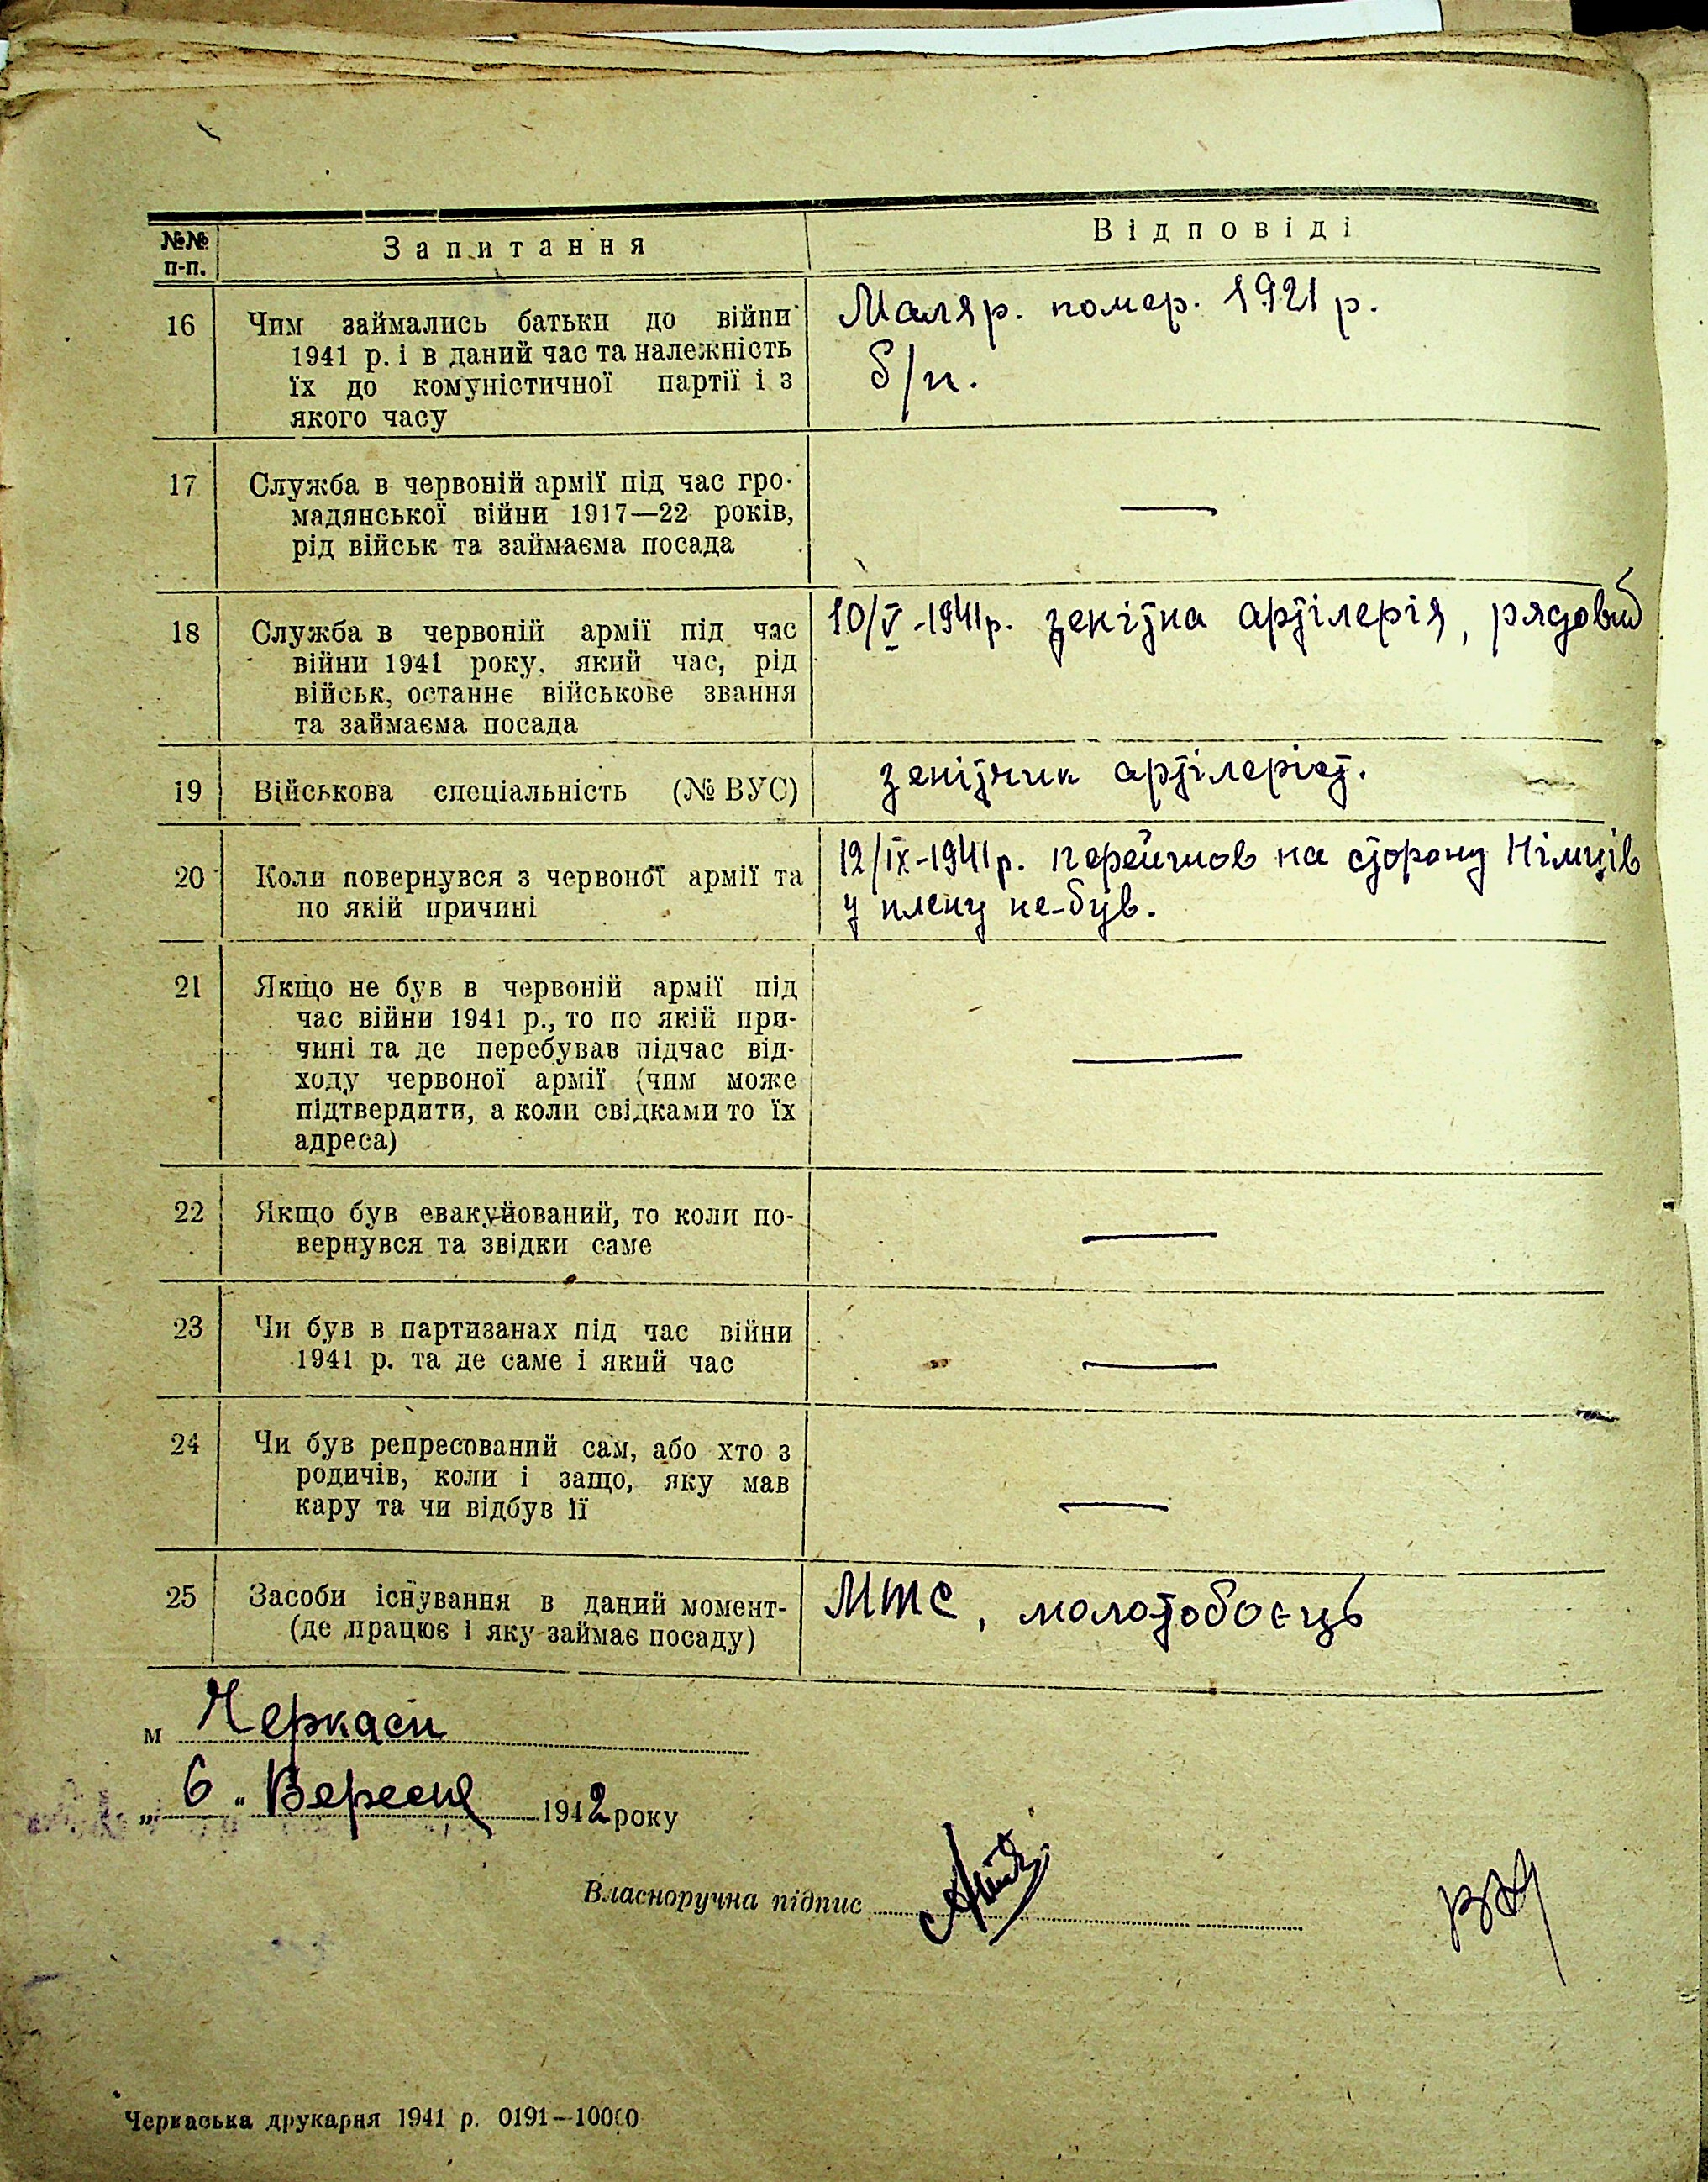 №№ п-п. Запитання Відповіді
16 Чим займались батьки до війни
1941 р. і в даний час та належність
їх до комуністичної партії і з
якого часу
Маляр. помер. 1921 р.
б/п.
17 Служба в червоній армії під час гро-
мадянської війни 1917—22 років,
рід військ та займаєма посада
—
18 Служба в червоній армії під час
війни 1941 року, який час, рід
військ, останнє військове звання
та займаєма посада
10/V-1941р. зенітна артілерія, рядовий
19 Військова спеціальність (№ ВУС)
зенітчик артілеріст.
20 Коли повернувся з червоної армії та
по якій причині
12/IX-1941р. перейшов на сторону Німців
у плену не-був.
21 Якщо не був в червоній армії під
час війни 1941 р., то по якій при-
чині та де перебував підчас від-
ходу червоної армії (чим може
підтвердити, а коли свідками то їх
адреса)
—
22 Якщо був евакуйований, то коли по-
вернувся та звідки саме
—
23 Чи був в партизанах під час війни
1941 р. та де саме і який час
—
24 Чи був репресований сам, або хто з
родичів, коли і защо, яку мав
кару та чи відбув її
—
25 Засоби існування в даний момент-
(де працює і яку займає посаду)
МТС, молотобоєць
м Черкаси
„6" Вересня 1942 року
Власноручна підпис
Черкаська друкарня 1941 р. 0191—10000